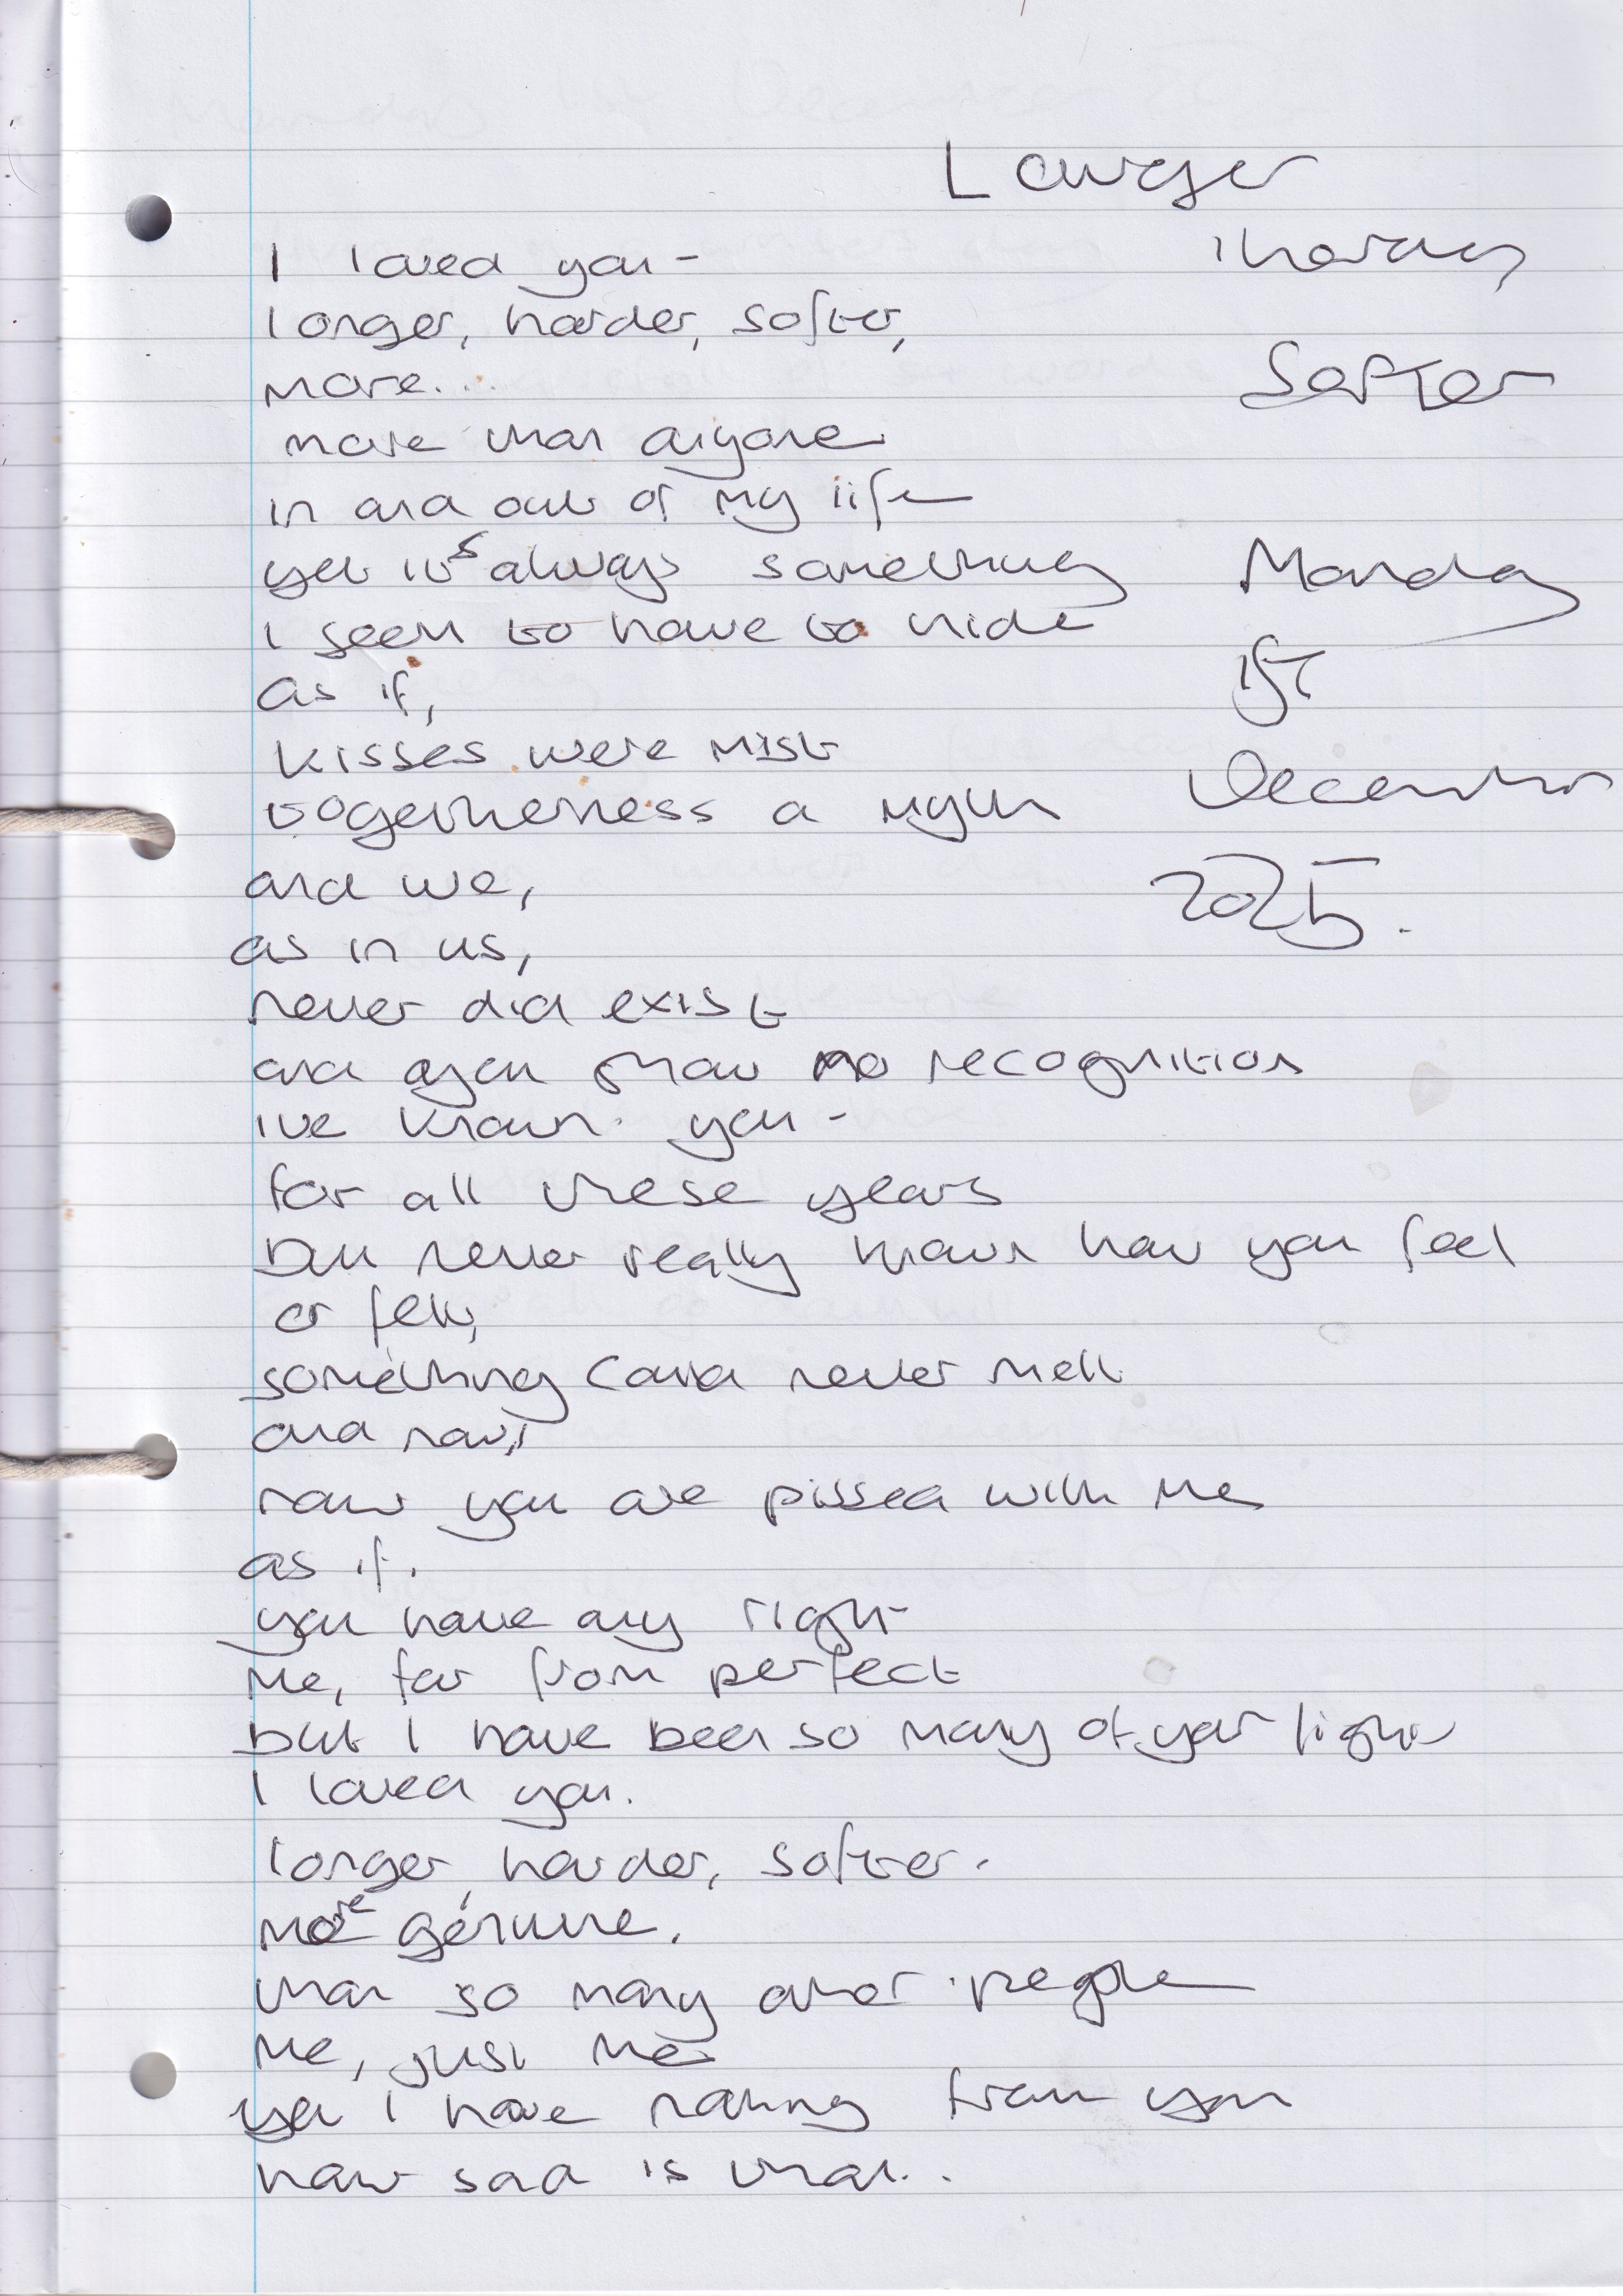 Longer
Harder
Softer
Monday
1st
December
2025.
I loved you -
longer, harder, softer,
more....
more than anyone
in and out of my life
yet its always something
I seem to have to hide
as if,
kisses were mist
togetherness a myth
and we,
as in us,
never did exist
and you show no recognition
ive known you -
for all these years
but never really known how you feel
or felt,
something could never melt
and now,
now you are pissed with me
as if.
you have any right
me, far from perfect
but I have been so many of your light
I loved you.
longer, harder, softer.
more genuine.
than so many other people
me, just me
yet I have nothing from you
how sad is that..